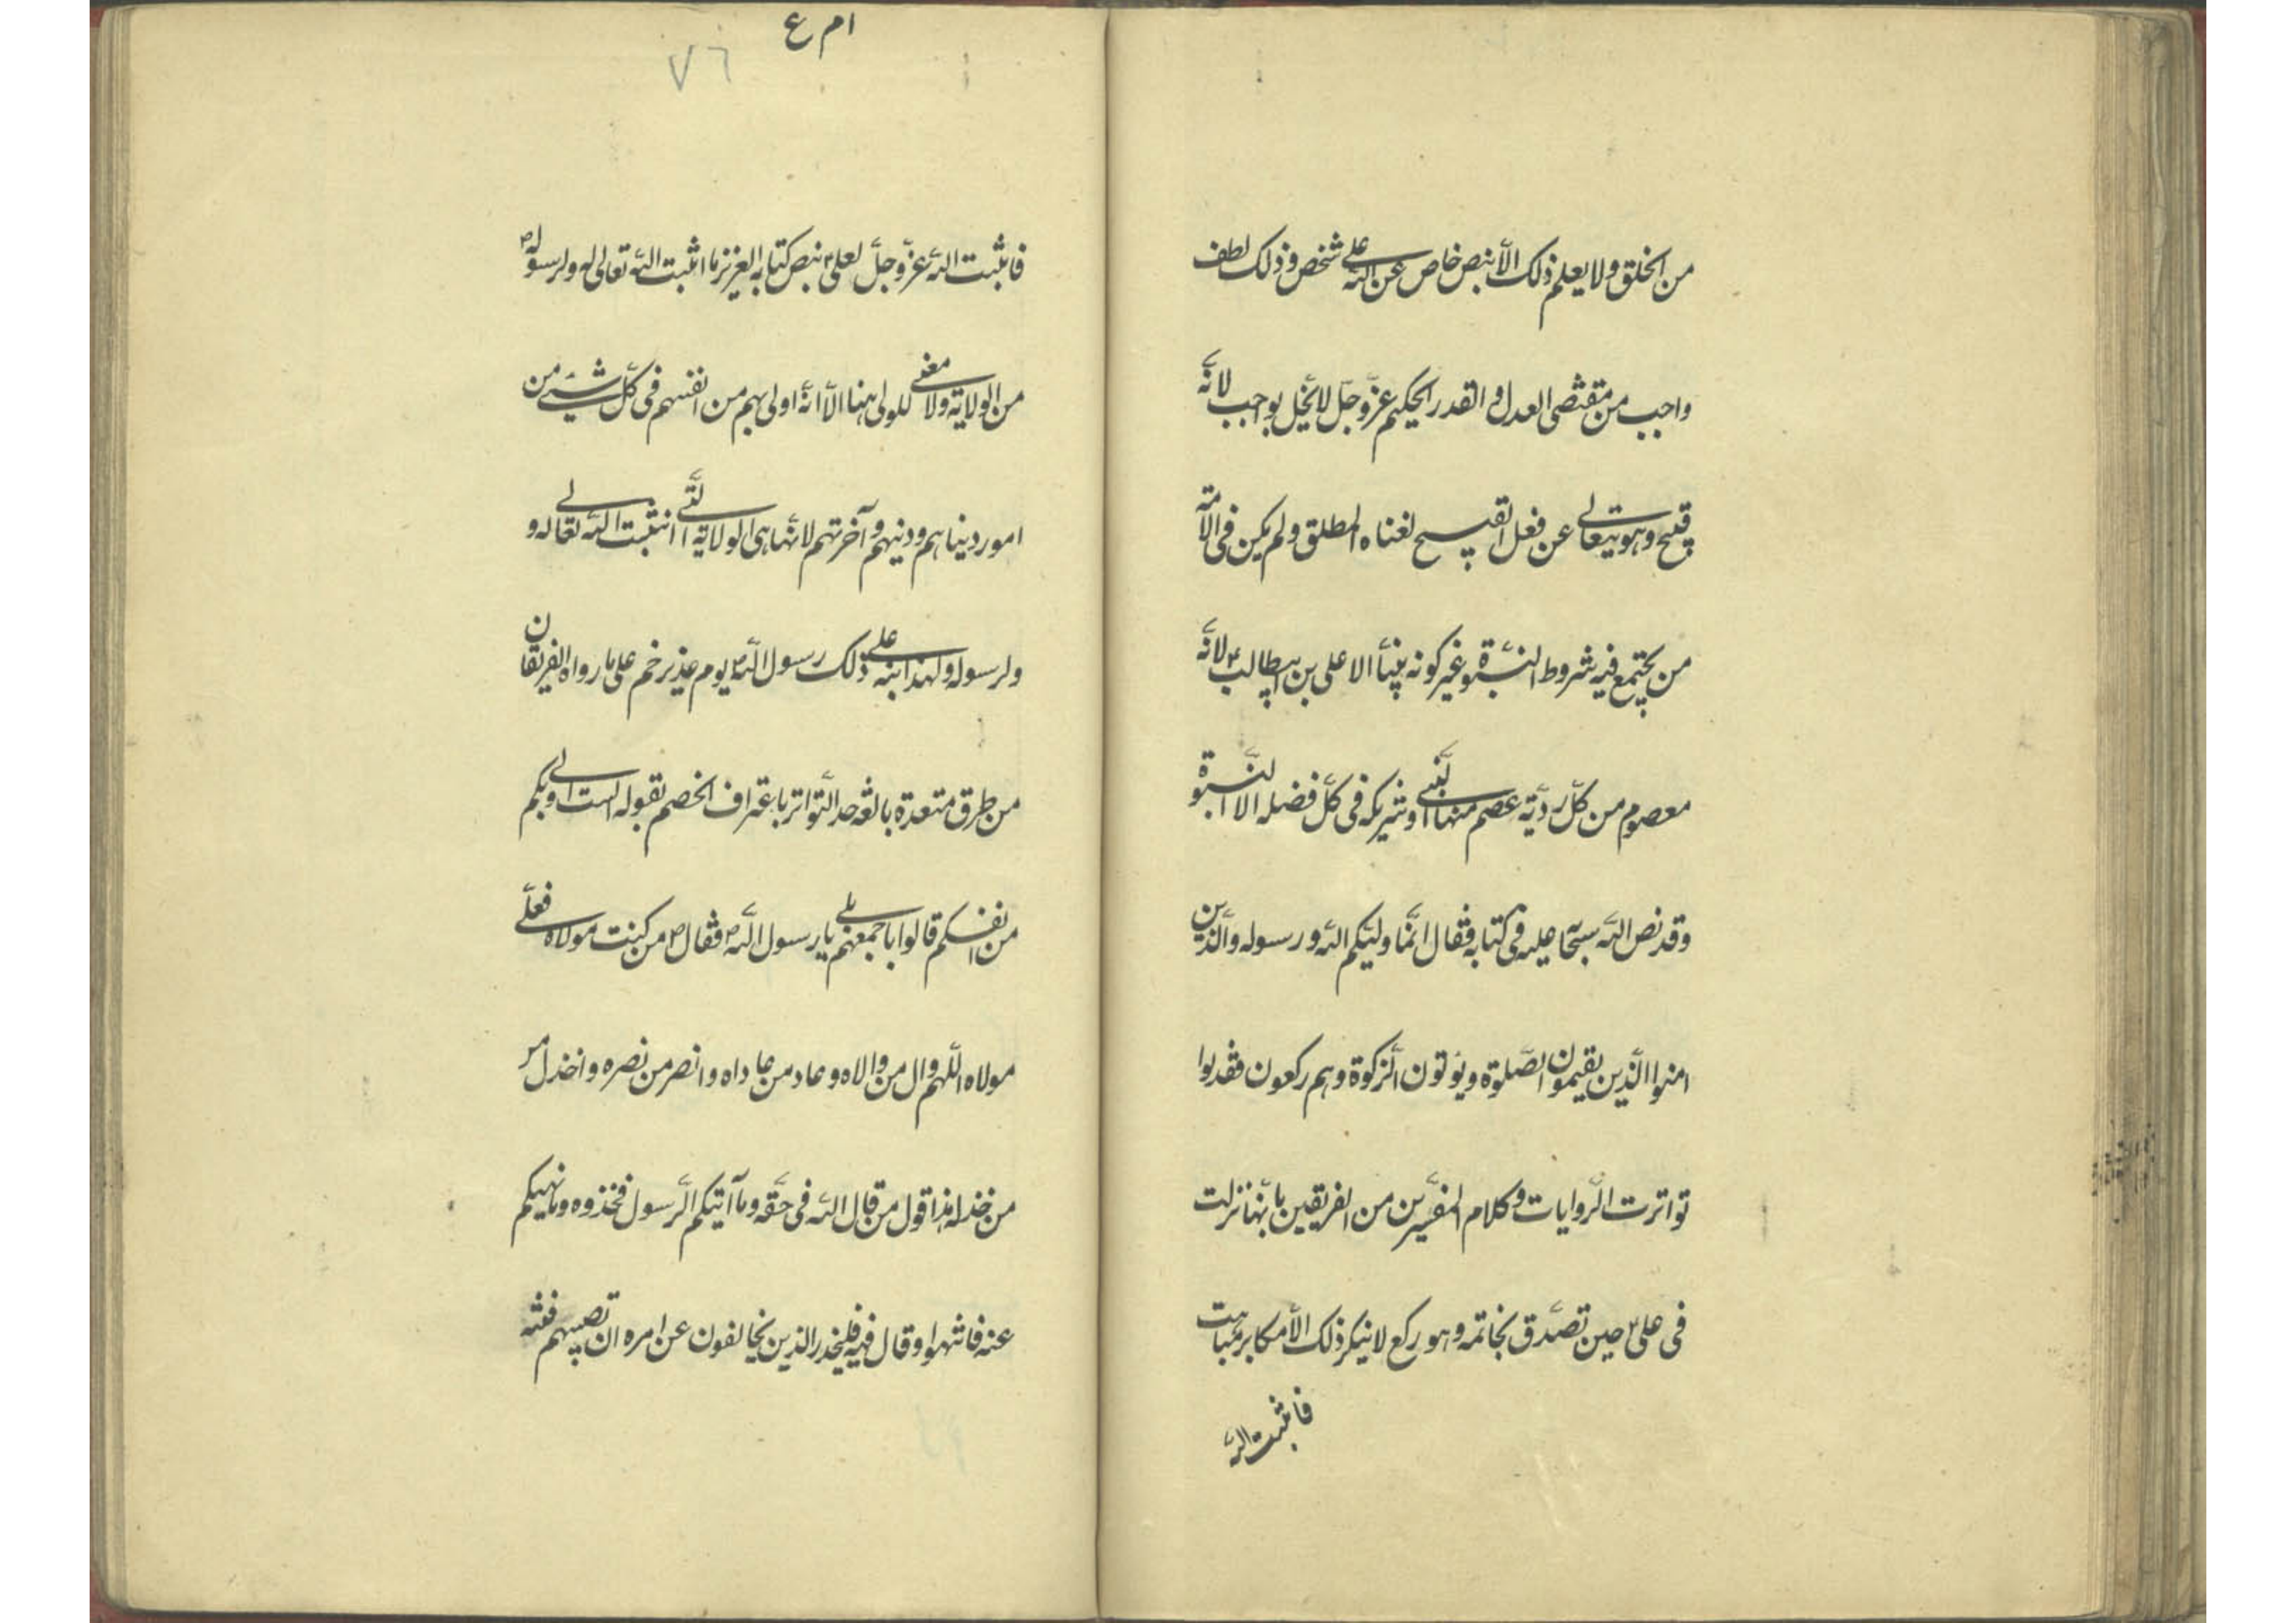 من الخلق ولا يعلم ذلك الّا بنص خاص عن اللّه على شخص وذلك لطف
واجب من مقتضى العدل والقدر الحكيم عزّ وجلّ لا يخل بواجب لانّه
قبيح وهو يتعالى عن فعل القبيح لغناه المطلق ولم يكن فى الامّة
من يجتمع فيه شروط النبّوة غير كونه نبيّاً الا على بن ابيطالب ع لانّه
معصوم من كلّ ردّية عصم منها النّبى وشريكه فى كلّ فضله الا النّبوة
وقد نص اللّه سبحانه عليه فى كتابه فقال انّما وليّكم اللّه ورسوله والّذين
امنوا الّذين يقيمون الصّلوة ويؤتون الزّكوة وهم ركعون فقد لوا
تواترت الرّوايات وكلام المفسّرين من الفريقين بانّها نزلت
فى على ع حين تصدّق بخاتمه وهو ركع لا ينكر ذلك الّا مكابر مباهت
فاثبت اللّه
ام ع
٧٦
فاثبت اللّه عزّ وجلّ لعلى ع بنص كتابه العزيز ما اثبت اللّه تعالى له ولرسوله ص
من الولاية ولا معنى للولى هنا الّا انّه اولى بهم من انفسهم فى كلّ شىء من
امور ديناهم ودينهم وآخرتهم لانّها هى الولاية الّتى اثبت اللّه تعالى له و
ولرسوله ولهذا ابنه على ذلك رسول اللّه ص يوم غدير خم على ما رواه الفريقان
من طرق متعدة بالغة حد التّواتر باعتراف الخصم بقوله الست اولى بكم
من انفسكم قالوا باجمعهم بلى يا رسول اللّه ص فقال ص من كنت مولاه فعلّى
مولاه اللّهم وال من والاه وعاد من عاداه وانصر من نصره واخذل من
من خذله هذا قول من قال اللّه فى حقّه وما آتيكم الرّسول فخذوه وما نهيكم
عنه فانتهوا وقال فيه فليحذر الذين يخالفون عن امره ان تصيبهم فتنة